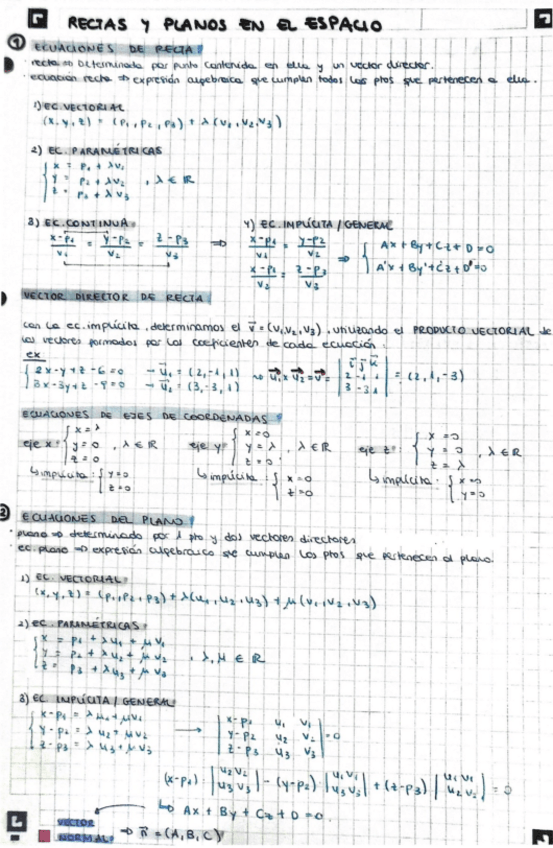 RECTAS Y PLANOS EN EL ESPACIO
1 ECUACIONES DE RECTA
· recta => Determinada por punto contenida en ella y un vector director.
· ecuación recta => expresión algebraica que cumplen todos los ptos que pertenecen a ella.
1) EC. VECTORIAL
(x, y, z) = (p₁, p₂, p₃) + λ(v₁, v₂, v₃)
2) EC. PARAMÉTRICAS
x = p₁ + λv₁
y = p₂ + λv₂ , λ ∈ ℝ
z = p₃ + λv₃
3) EC. CONTINUA
(x-p₁)/v₁ = (y-p₂)/v₂ = (z-p₃)/v₃ =>
4) EC. IMPLÍCITA / GENERAL
(x-p₁)/v₁ = (y-p₂)/v₂
(x-p₁)/v₁ = (z-p₃)/v₃
=> { Ax + By + Cz + D = 0
A'x + B'y + C'z + D' = 0
VECTOR DIRECTOR DE RECTA
con la ec. implícita, determinamos el v⃗ = (v₁, v₂, v₃), utilizando el PRODUCTO VECTORIAL de
los vectores formados por los coeficientes de cada ecuación.
ex
{ 2x - y + z - 6 = 0 → u⃗₁ = (2, -1, 1)
3x - 3y + z - 9 = 0 → u⃗₂ = (3, -3, 1)
u⃗₁ x u⃗₂ = v⃗ = | i⃗ j⃗ k⃗ |
| 2 -1 1 | = (2, 1, -3)
| 3 -3 1 |
ECUACIONES DE EJES DE COORDENADAS
eje x: { x = λ
y = 0 , λ ∈ ℝ
z = 0
↳ implícita: { y = 0
z = 0
eje y: { x = 0
y = λ , λ ∈ ℝ
z = 0
↳ implícita: { x = 0
z = 0
eje z: { x = 0
y = 0 , λ ∈ ℝ
z = λ
↳ implícita: { x = 0
y = 0
2 ECUACIONES DEL PLANO
· plano => determinado por 1 pto y dos vectores directores
· ec. plano => expresión algebraica que cumplen los ptos que pertenecen al plano.
1) EC. VECTORIAL
(x, y, z) = (p₁, p₂, p₃) + λ(u₁, u₂, u₃) + μ(v₁, v₂, v₃)
2) EC. PARAMÉTRICAS
x = p₁ + λu₁ + μv₁
y = p₂ + λu₂ + μv₂ , λ, μ ∈ ℝ
z = p₃ + λu₃ + μv₃
3) EC. IMPLÍCITA / GENERAL
{ x - p₁ = λu₁ + μv₁
y - p₂ = λu₂ + μv₂
z - p₃ = λu₃ + μv₃
→ | x-p₁ u₁ v₁ |
| y-p₂ u₂ v₂ | = 0
| z-p₃ u₃ v₃ |
(x-p₁) | u₂ v₂ | - (y-p₂) | u₁ v₁ | + (z-p₃) | u₁ v₁ | = 0
| u₃ v₃ | | u₃ v₃ | | u₂ v₂ |
↳ Ax + By + Cz + D = 0
VECTOR
NORMAL: => n⃗ = (A, B, C)